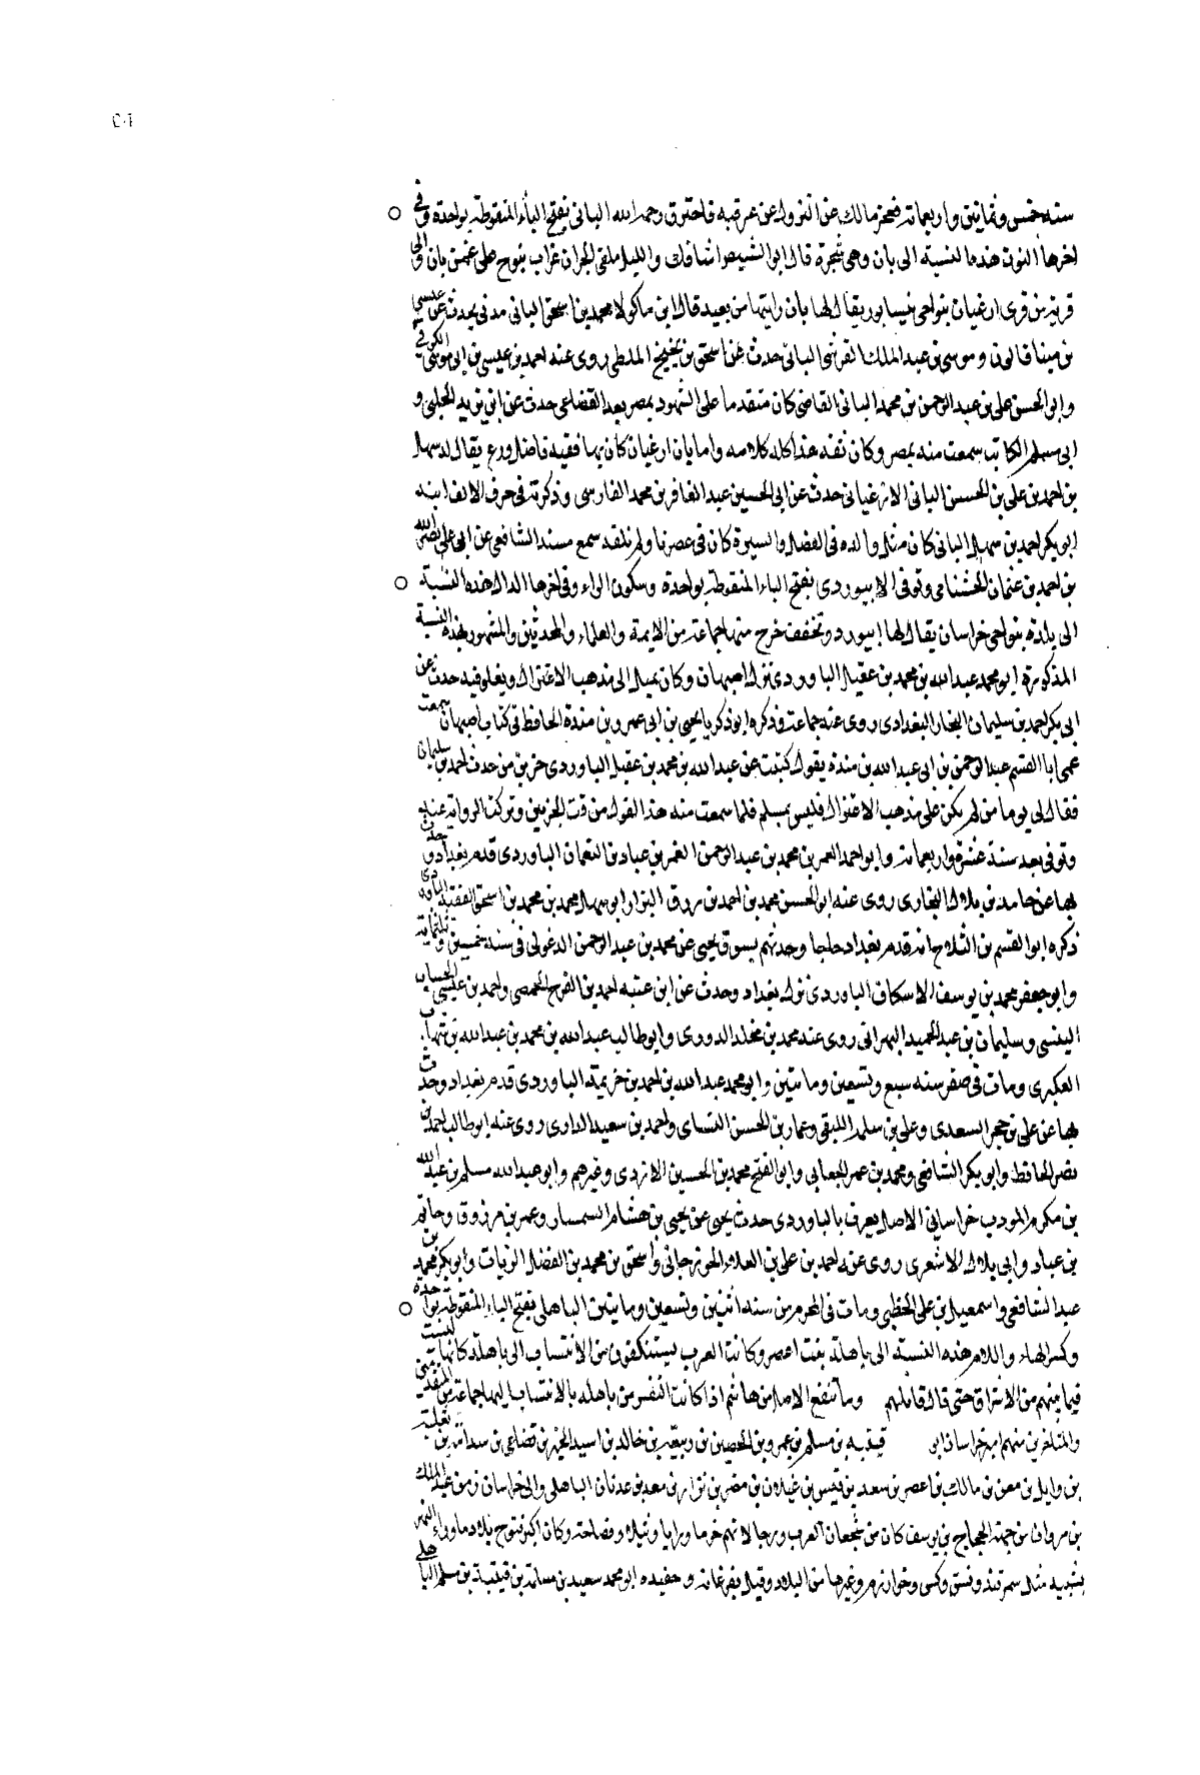 سنه خمس وثمانين واربعمائة فعجز مالك عن النزول عن عرقبه فاحترق رحمه الله الباني بفتح الباء المنقوطة بواحدة وفي
اخرها النون هذه النسبة الى بان وهي شجرة قال ابو الشيص اشاقك والليل ملقى الجران غراب ينوح على غصن بان والى
قرية من قرى ارغيان بنواحى نيسابور يقال لها بان رايتها من بعيد قال ابن ماكولا محمد بن اسحق الباني مدنى يحدث عن عيسى
بن مينا قالون وموسى بن عبد الملك القرشى البانى حدث عن اسحق بن نجيح الملطى روى عنه احمد بن عيسى بن ابى موسى الكوفي
وابو الحسن على بن عبد الرحمن بن محمد البانى القاضى كان متقدما على الشهود بمصر بعد القضاعى حدث عن ابى يزيد الحلبى و
ابى مسلم الكاتب سمعت منه بمصر وكان ثقه هذا كله كلامه واما بان ارغيان كان بها فقيه فاضل ورع يقال له سهل
بن احمد بن على بن الحسن البانى الارغيانى حدث عن ابى الحسين عبد الغافر بن محمد الفارسى وذكرته فى حرف الالف ابنه
ابو بكر احمد بن سهل البانى كان مثل والده فى الفضل والسيرة كان فى عصرنا ولم نلقه سمع مسند الشافعى عن ابى على نصر الله
بن احمد بن عثمان الخشنامى وتوفى الابيوردى بفتح الباء المنقوطة بواحدة وسكون الراء وفى اخرها الدال هذه النسبة
الى بلدة بنواحى خراسان يقال لها ابيورد وتخفف خرج منها جماعة من الايمة والعلماء والمحدثين والمشهور بهذه النسبة
المذكورة ابو محمد عبد الله بن محمد بن عقيل الباوردى نزل اصبهان وكان يميل الى مذهب الاعتزال ويغلو فيه حدث عن
ابى بكر احمد بن سليمان النجار البغدادى روى عنه جماعة وذكره ابو ذكريا يحيى بن ابى عمرو بن مندة الحافظ فى كتاب اصبهان سمعت
عمى ابا القسم عبد الرحمن بن ابى عبد الله بن مندة يقول كتبت عن عبد الله بن محمد بن عقيل الباوردى جزين من حدث احمد بن سليمان
فقال لى يوما من لم يكن على مذهب الاعتزال فليس بمسلم فلما سمعت منه هذا القول مزقت الجزين وتركت الرواية عنه
وتوفى بعد سنة عشرة واربعمائة وابو احمد العمر بن محمد بن عبد الرحمن العمر بن عباد بن النعمان الباوردى قدم بغداد وحدث
بها عن حامد بن بلال البخارى روى عنه ابو الحسن محمد بن احمد بن رزق البزاز وابو سهل محمد بن محمد بن اسحق الفقيه الباوردى
ذكره ابو القسم بن الثلاج انه قدم بغداد حاجا وحدثهم بسوق يحيى عن محمد بن عبد الرحمن الدغولى فى سنة خمسين وثلثماية
وابو جعفر محمد بن يوسف الاسكاف الباوردى نزل بغداد وحدث عن ابن عتبه احمد بن الفرج الحمصى واحمد بن عيسى الخشاب
التنسى وسليمان بن عبد الحميد البهرانى روى عنه محمد بن مخلد الدورى وابو طالب عبد الله بن محمد بن عبد الله بن شهاب
العكبرى ومات فى صفر سنه سبع وتسعين ومائتين وابو محمد عبد الله بن احمد بن خزيمة الباوردى قدم بغداد وحدث
بها عن على بن حجر السعدى وعلى بن سلمه اللبقى وعمار بن الحسن النساى واحمد بن سعيد الدارى روى عنه ابو طالب احمد بن
نصر الحافظ وابو بكر الشافعى ومحمد بن عمر الجعابى وابو الفتح محمد بن الحسين الازدى وغيرهم وابو عبد الله مسلم بن عبد الله
بن مكرم المودب خراسانى الاصل يعرف بالباوردى حدث يحيى عن يحيى بن هشام السمسار وعمر بن مرزوق وحاتم
بن عباد وابى بلال الاشعرى روى عنه احمد بن على بن العلاء الجوزجانى واسحق بن محمد بن الفضل الزيات وابو بكر محمد بن
عبد الشافعى واسمعيل بن على الخطبى ومات فى المحرم من سنه اثنين وتسعين ومايتين الباهلى بفتح الباء المنقوطة بواحدة
وكسر الهاء واللام هذه النسبة الى باهلة بنت اعصر وكانت العرب يستنكفون من الانتساب الى باهلة كانها ليست
فيما بينهم من الاشراق حتى قال قايلهم وما تنفع الاصل من هاشم اذا كانت النفس من باهله بالانتساب اليها جماعة من المتقدمين
والمتاخرين منهم امير خراسان ابو قتيبه بن مسلم بن عمرو بن الحصين بن ربيعة بن خالد بن اسيد الخير بن قضاعى بن سدامة بن ثعلبة
بن وايل بن معن بن مالك بن اعصر بن سعد بن قيس بن غيلان بن مضر بن نزار بن معد بن عدنان الباهلى والى خراسان زمن عبد الملك
بن مروان من جهة الحجاج بن يوسف كان من شجعان العرب ورجالاتهم حزما ورايا ونبلا وفصاحة وكان اكثر فتوح بلاد ماوراء النهر
بيديه مثل سمرقند ونسق وكس وخوارزم وغيرها من البلاد وقتل بفرغانه وحفيده ابو محمد سعيد بن مسلمة بن قتيبة بن مسلم الباهلى